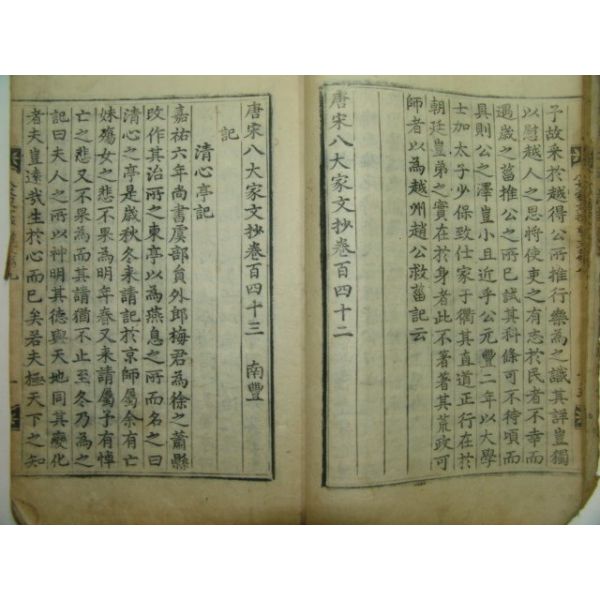 予故采於越得公所推行樂為之識其詳豈獨
以慰越人之思將使吏之有志於民者不幸而
遇歲之菑推公之所已試其科條可不待頃而
具則公之澤豈小且近乎公元豐二年以大學
士加太子少保致仕家于衢其直道正行在於
朝廷豈弟之實在於身者此不著著其荒政可
師者以為越州趙公救菑記云
唐宋八大家文抄卷百四十二
唐宋八大家文抄卷百四十三 南豐
記
清心亭記
嘉祐六年尚書虞部員外郎梅君為徐之蕭縣
改作其治所之東亭以為燕息之所而名之曰
清心之亭是歲秋冬來請記於京師屬余有亡
妹殤女之悲不果為明年春又來請屬予有悼
亡之悲又不果為而其請猶不止至冬乃為之
記曰夫人之所以神明其德與天地同其變化
者夫豈遠哉生於心而已矣若夫極天下之知